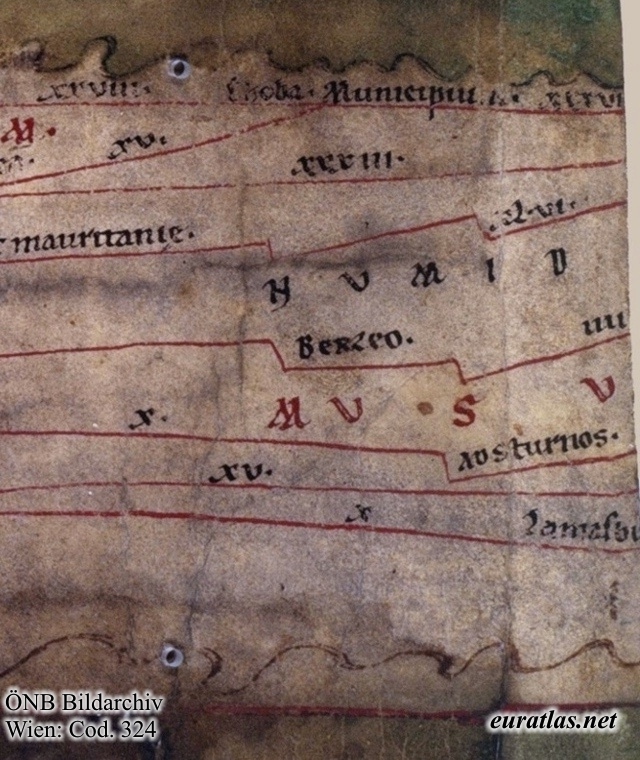 xxviii. Choba. Municipiu.
M. xv.
xxxiii.
mauritanie. xl.vi.
N V M I D
Berzeo. iiii
M V S V
x.
ad sturnos.
xv.
x Lamasbu
ÖNB Bildarchiv
Wien: Cod. 324
euratlas.net